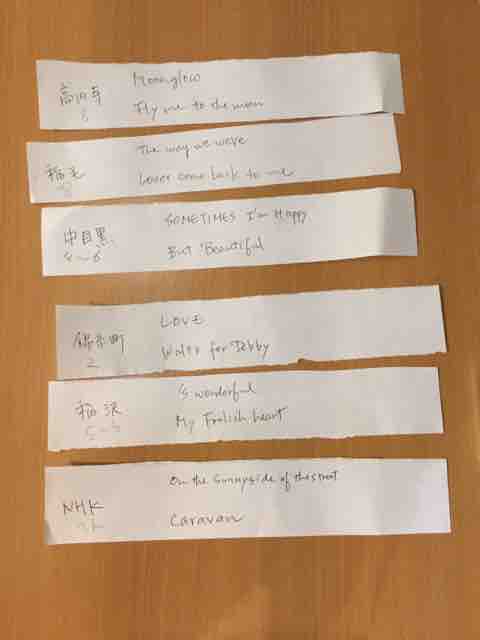 Moonglow
高田車
Fly me to the moon
The way we were
稲毛
Lover come back to me
SOMETIMES I'm Happy
中目黒
But Beautiful
4~6
LOVE
錦糸町
Waltz for Debby
2
S wonderful
稲浪
My Foolish heart
5~5
On the Sunnyside of the street
NHK
Caravan